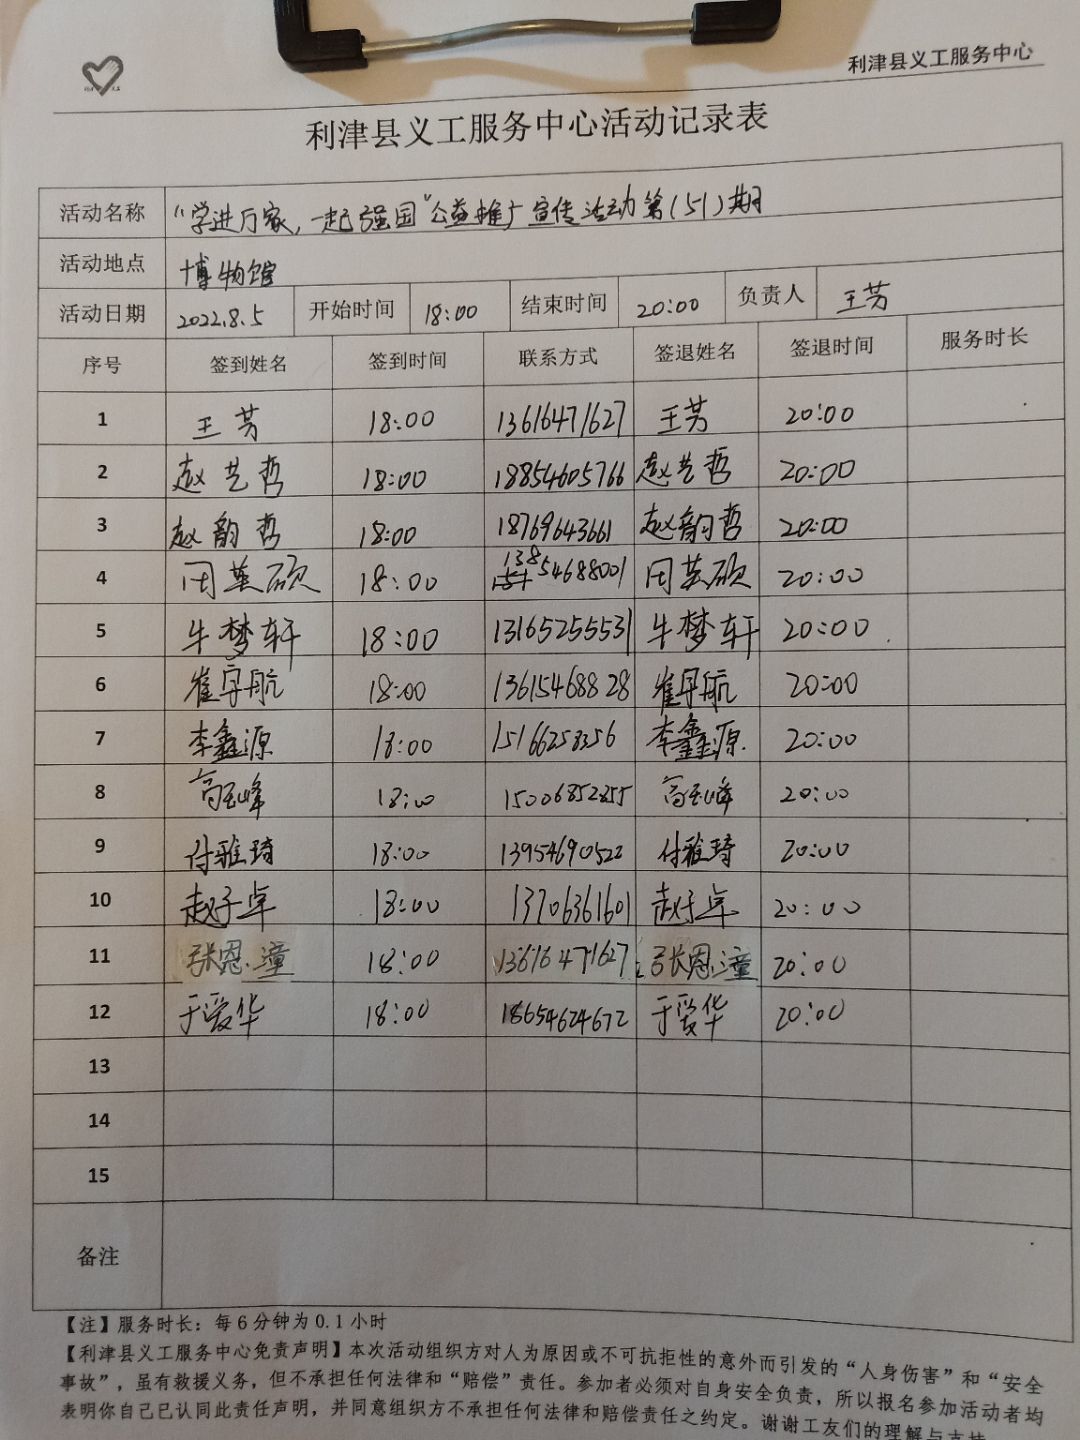 利津县义工服务中心
利津县义工服务中心活动记录表
活动名称 “学进万家，一起强国”公益推广宣传活动第(51)期
活动地点 博物馆
活动日期 2022.8.5 开始时间 18:00 结束时间 20:00 负责人 王芳
序号 签到姓名 签到时间 联系方式 签退姓名 签退时间 服务时长
1 王芳 18:00 13616471627 王芳 20:00
2 赵艺哲 18:00 18854605766 赵艺哲 20:00
3 赵韵哲 18:00 18769643661 赵韵哲 20:00
4 18:00 13854688001 20:00
5 牛梦轩 18:00 13165255531 牛梦轩 20:00
6 崔宇航 18:00 13615468828 崔宇航 20:00
7 李鑫源 18:00 15166258356 李鑫源 20:00
8 高玉峰 18:00 15006852855 高玉峰 20:00
9 付雅琦 18:00 13954690522 付雅琦 20:00
10 赵子卓 18:00 13706361601 赵子卓 20:00
11 张恩潼 18:00 13616471627 张恩潼 20:00
12 于爱华 18:00 18654624672 于爱华 20:00
13
14
15
备注
【注】服务时长：每6分钟为0.1小时
【利津县义工服务中心免责声明】本次活动组织方对人为原因或不可抗拒性的意外而引发的“人身伤害”和“安全
事故”，虽有救援义务，但不承担任何法律和“赔偿”责任。参加者必须对自身安全负责，所以报名参加活动者均
表明你自己已认同此责任声明，并同意组织方不承担任何法律和赔偿责任之约定。谢谢工友们的理解与支持